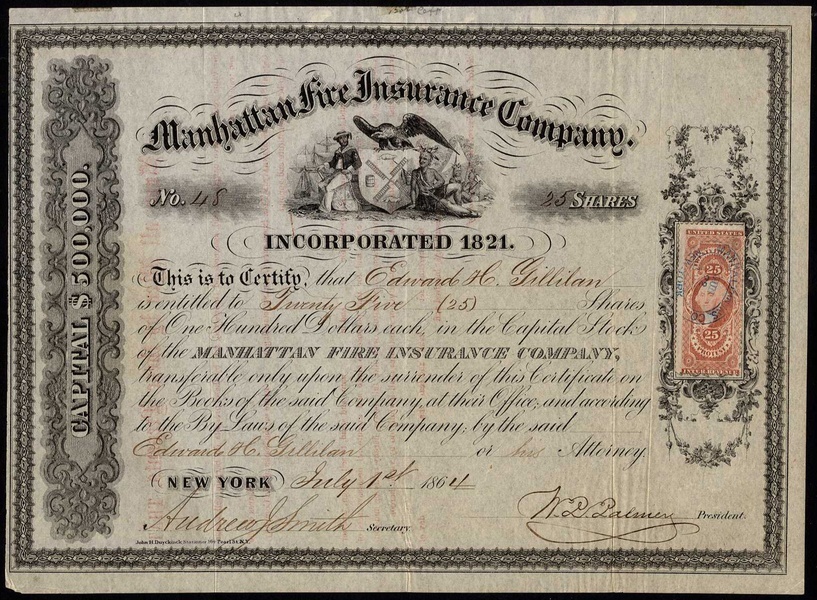 Manhattan Fire Insurance Company.
No. 48
25 SHARES
INCORPORATED 1821.
CAPITAL $500,000.
This is to Certify, that Edward H. Gillilan
is entitled to Twenty Five (25) Shares
of One Hundred Dollars each, in the Capital Stock
of the MANHATTAN FIRE INSURANCE COMPANY,
transferable only upon the surrender of this Certificate on
the Books of the said Company, at their Office; and according
to the By Laws of the said Company; by the said
Edward H. Gillilan or his Attorney.
NEW YORK July 1st 1864
Andrew J Smith Secretary.
W. P. Palmer President.
John H Duyckinck Stationer Pearl St N.Y.
UNITED STATES
25
25
PROTEST
INTER REVENUE